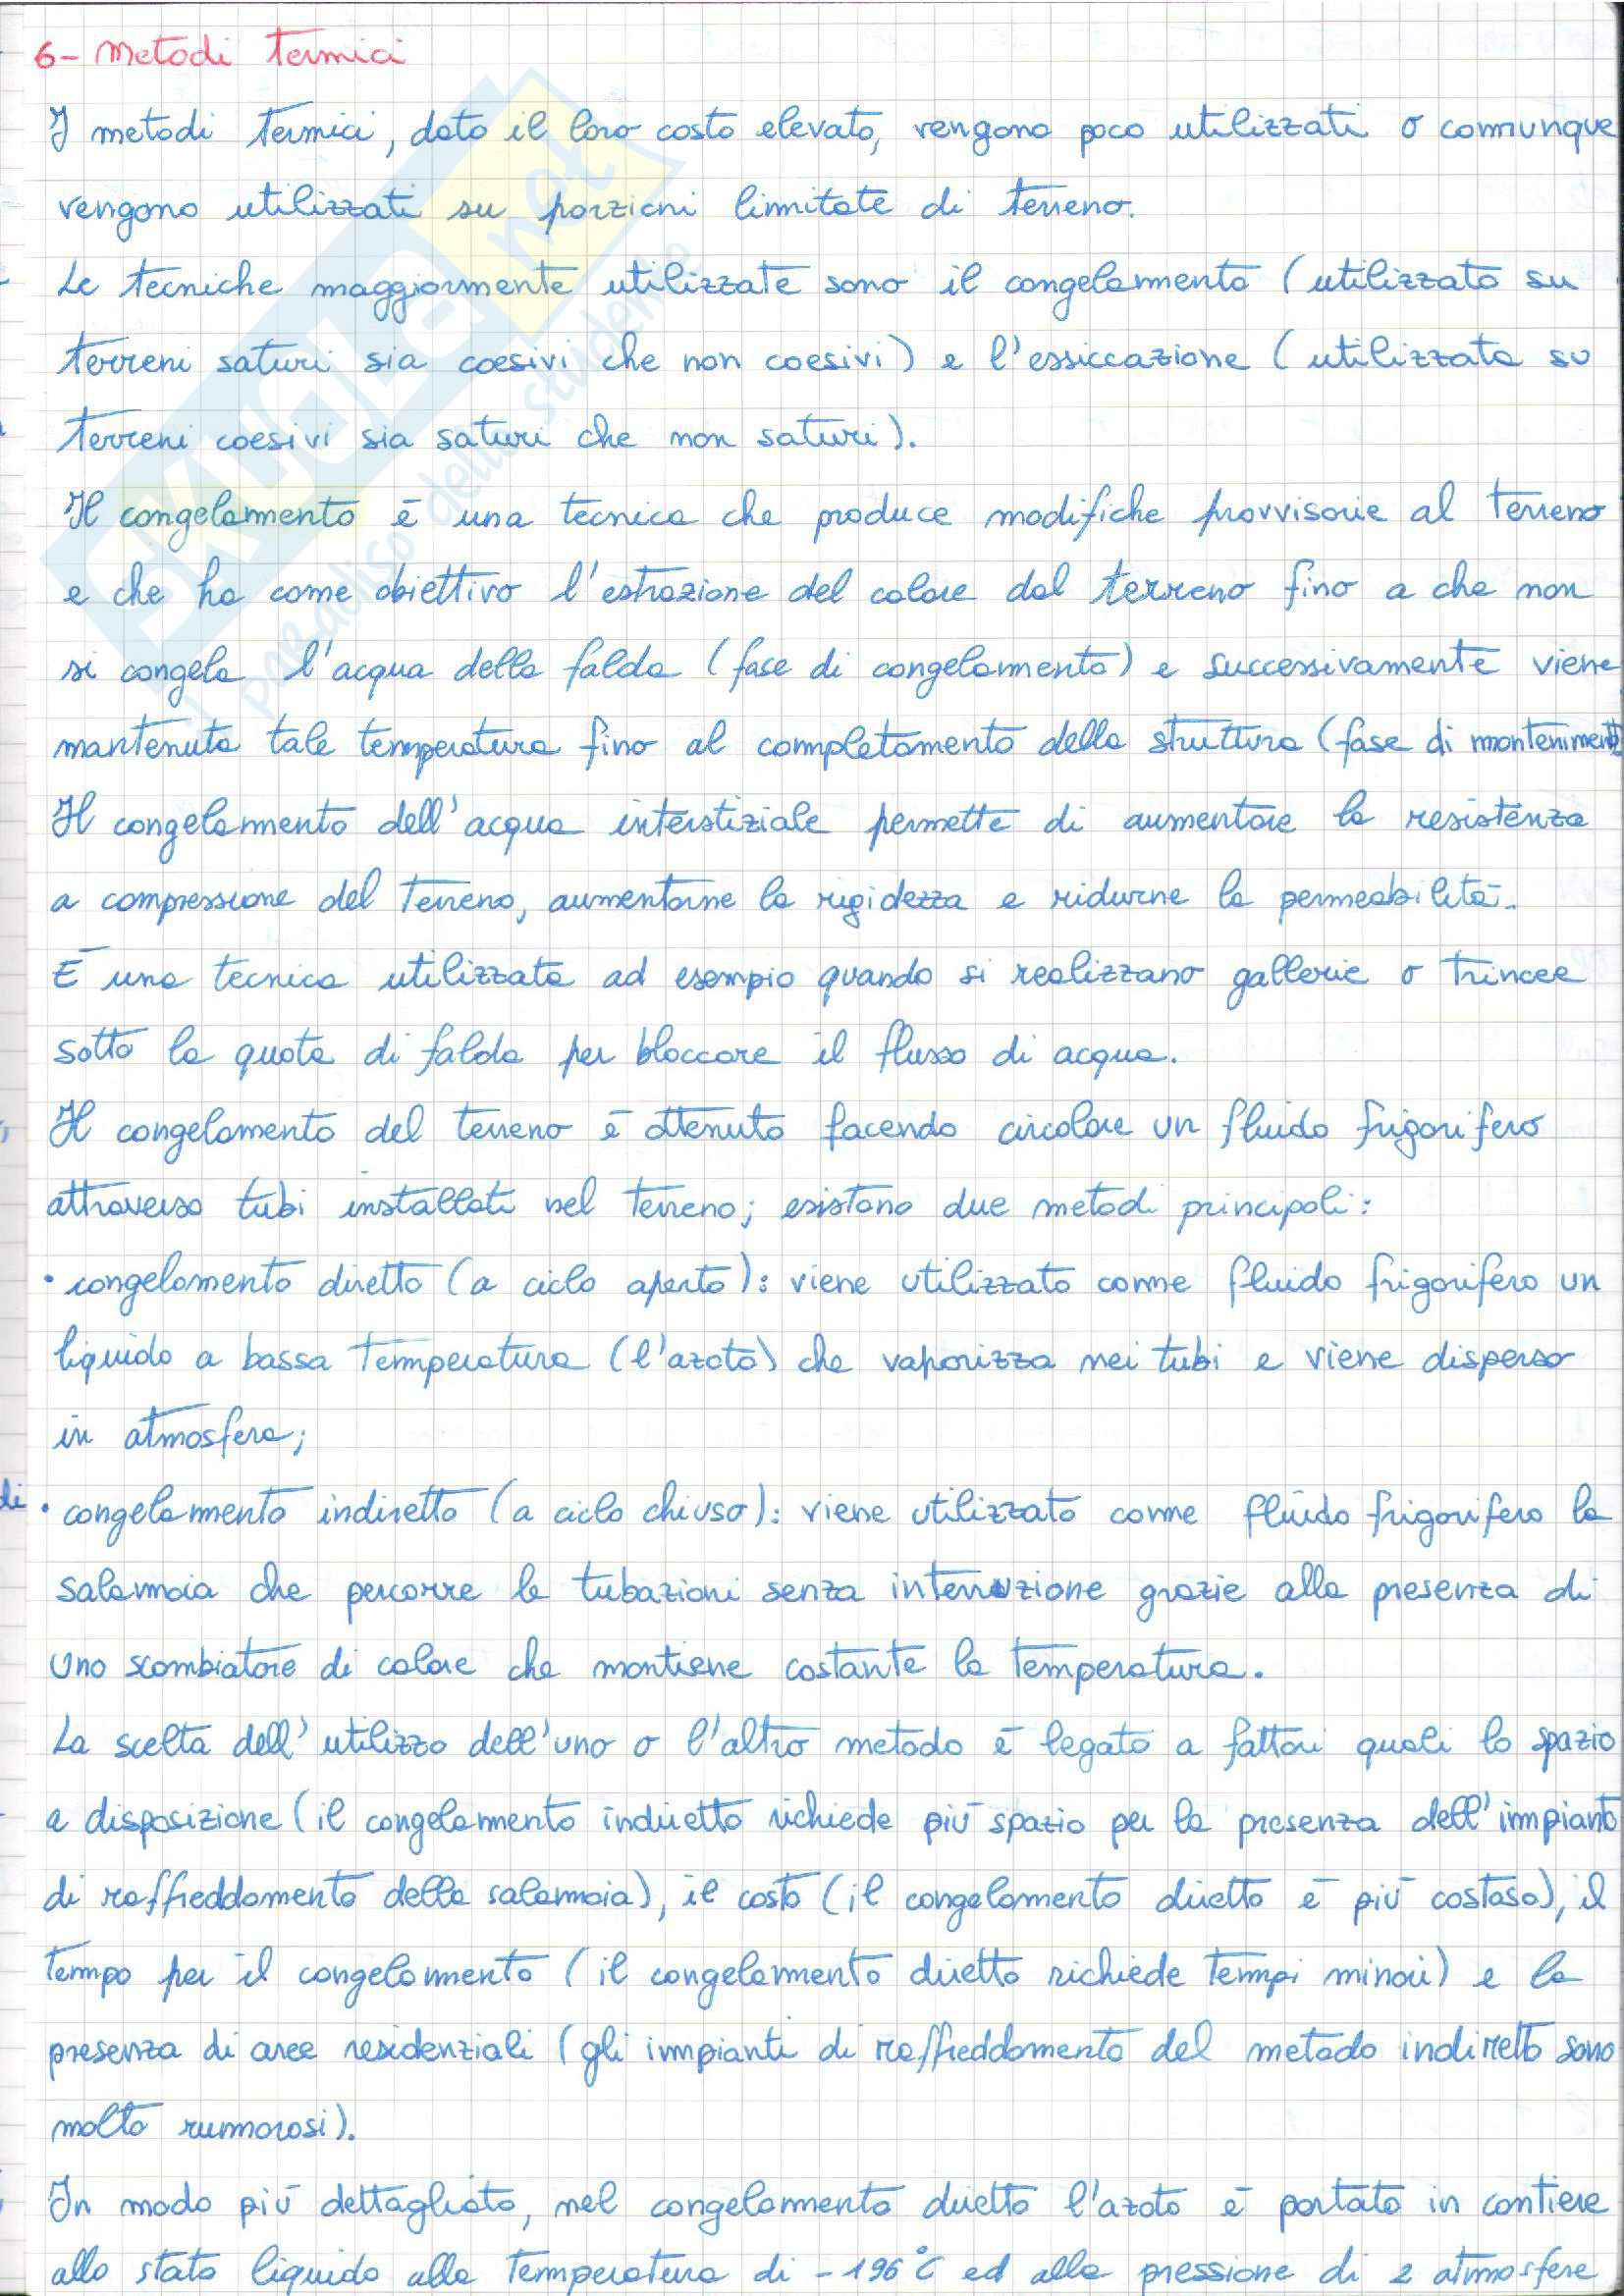 6- Metodi termici
I metodi termici, dato il loro costo elevato, vengono poco utilizzati o comunque
vengono utilizzati su porzioni limitate di terreno.
Le tecniche maggiormente utilizzate sono il congelamento (utilizzato su
terreni saturi sia coesivi che non coesivi) e l'essiccazione (utilizzata su
terreni coesivi sia saturi che non saturi).
Il congelamento è una tecnica che produce modifiche provvisorie al terreno
e che ha come obiettivo l'estrazione del calore dal terreno fino a che non
si congela l'acqua della falda (fase di congelamento) e successivamente viene
mantenuta tale temperatura fino al completamento della struttura (fase di mantenimento
Il congelamento dell'acqua interstiziale permette di aumentare la resistenza
a compressione del terreno, aumentarne la rigidezza e ridurne la permeabilità.
È una tecnica utilizzata ad esempio quando si realizzano gallerie o trincee
sotto la quota di falda per bloccare il flusso di acqua.
Il congelamento del terreno è ottenuto facendo circolare un fluido frigorifero
attraverso tubi installati nel terreno; esistono due metodi principali:
• congelamento diretto (a ciclo aperto): viene utilizzato come fluido frigorifero un
liquido a bassa temperatura (l'azoto) che vaporizza nei tubi e viene disperso
in atmosfera;
di • congelamento indiretto (a ciclo chiuso): viene utilizzato come fluido frigorifero la
salamoia che percorre le tubazioni senza interruzione grazie alla presenza di
uno scambiatore di calore che mantiene costante la temperatura.
La scelta dell'utilizzo dell'uno o l'altro metodo è legato a fattori quali lo spazio
a disposizione (il congelamento indiretto richiede più spazio per la presenza dell'impianto
di raffreddamento della salamoia), il costo (il congelamento diretto è più costoso), il
tempo per il congelamento (il congelamento diretto richiede tempi minori) e la
presenza di aree residenziali (gli impianti di raffreddamento del metodo indiretto sono
molto rumorosi).
In modo più dettagliato, nel congelamento diretto l'azoto è portato in cantiere
allo stato liquido alla temperatura di -196°C ed alla pressione di 2 atmosfere
SKUOLA.net
paradiso dello studente